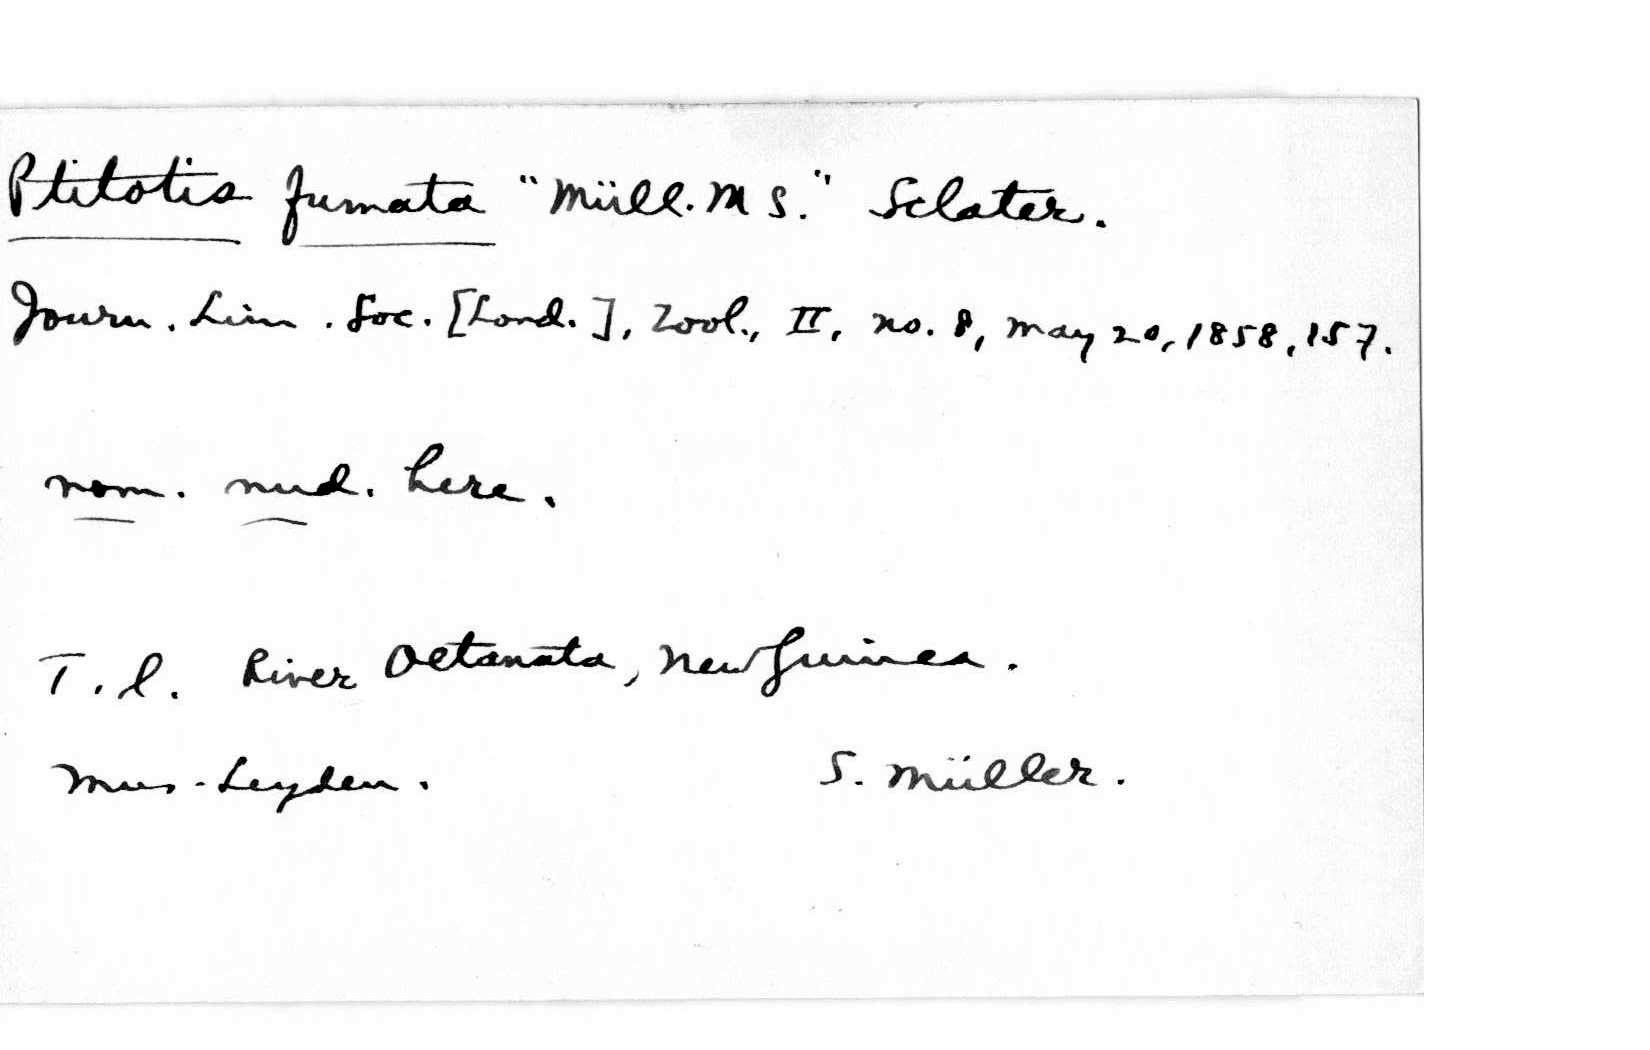 Ptilotis fumata "Müll. MS." Sclater.
Journ. Linn. Soc. [Lond.], Zool., II, no. 8, May 20, 1858, 157.
nom. nud. here.
T. l. River Oetanata, New Guinea.
Mus. Leyden. S. Müller.